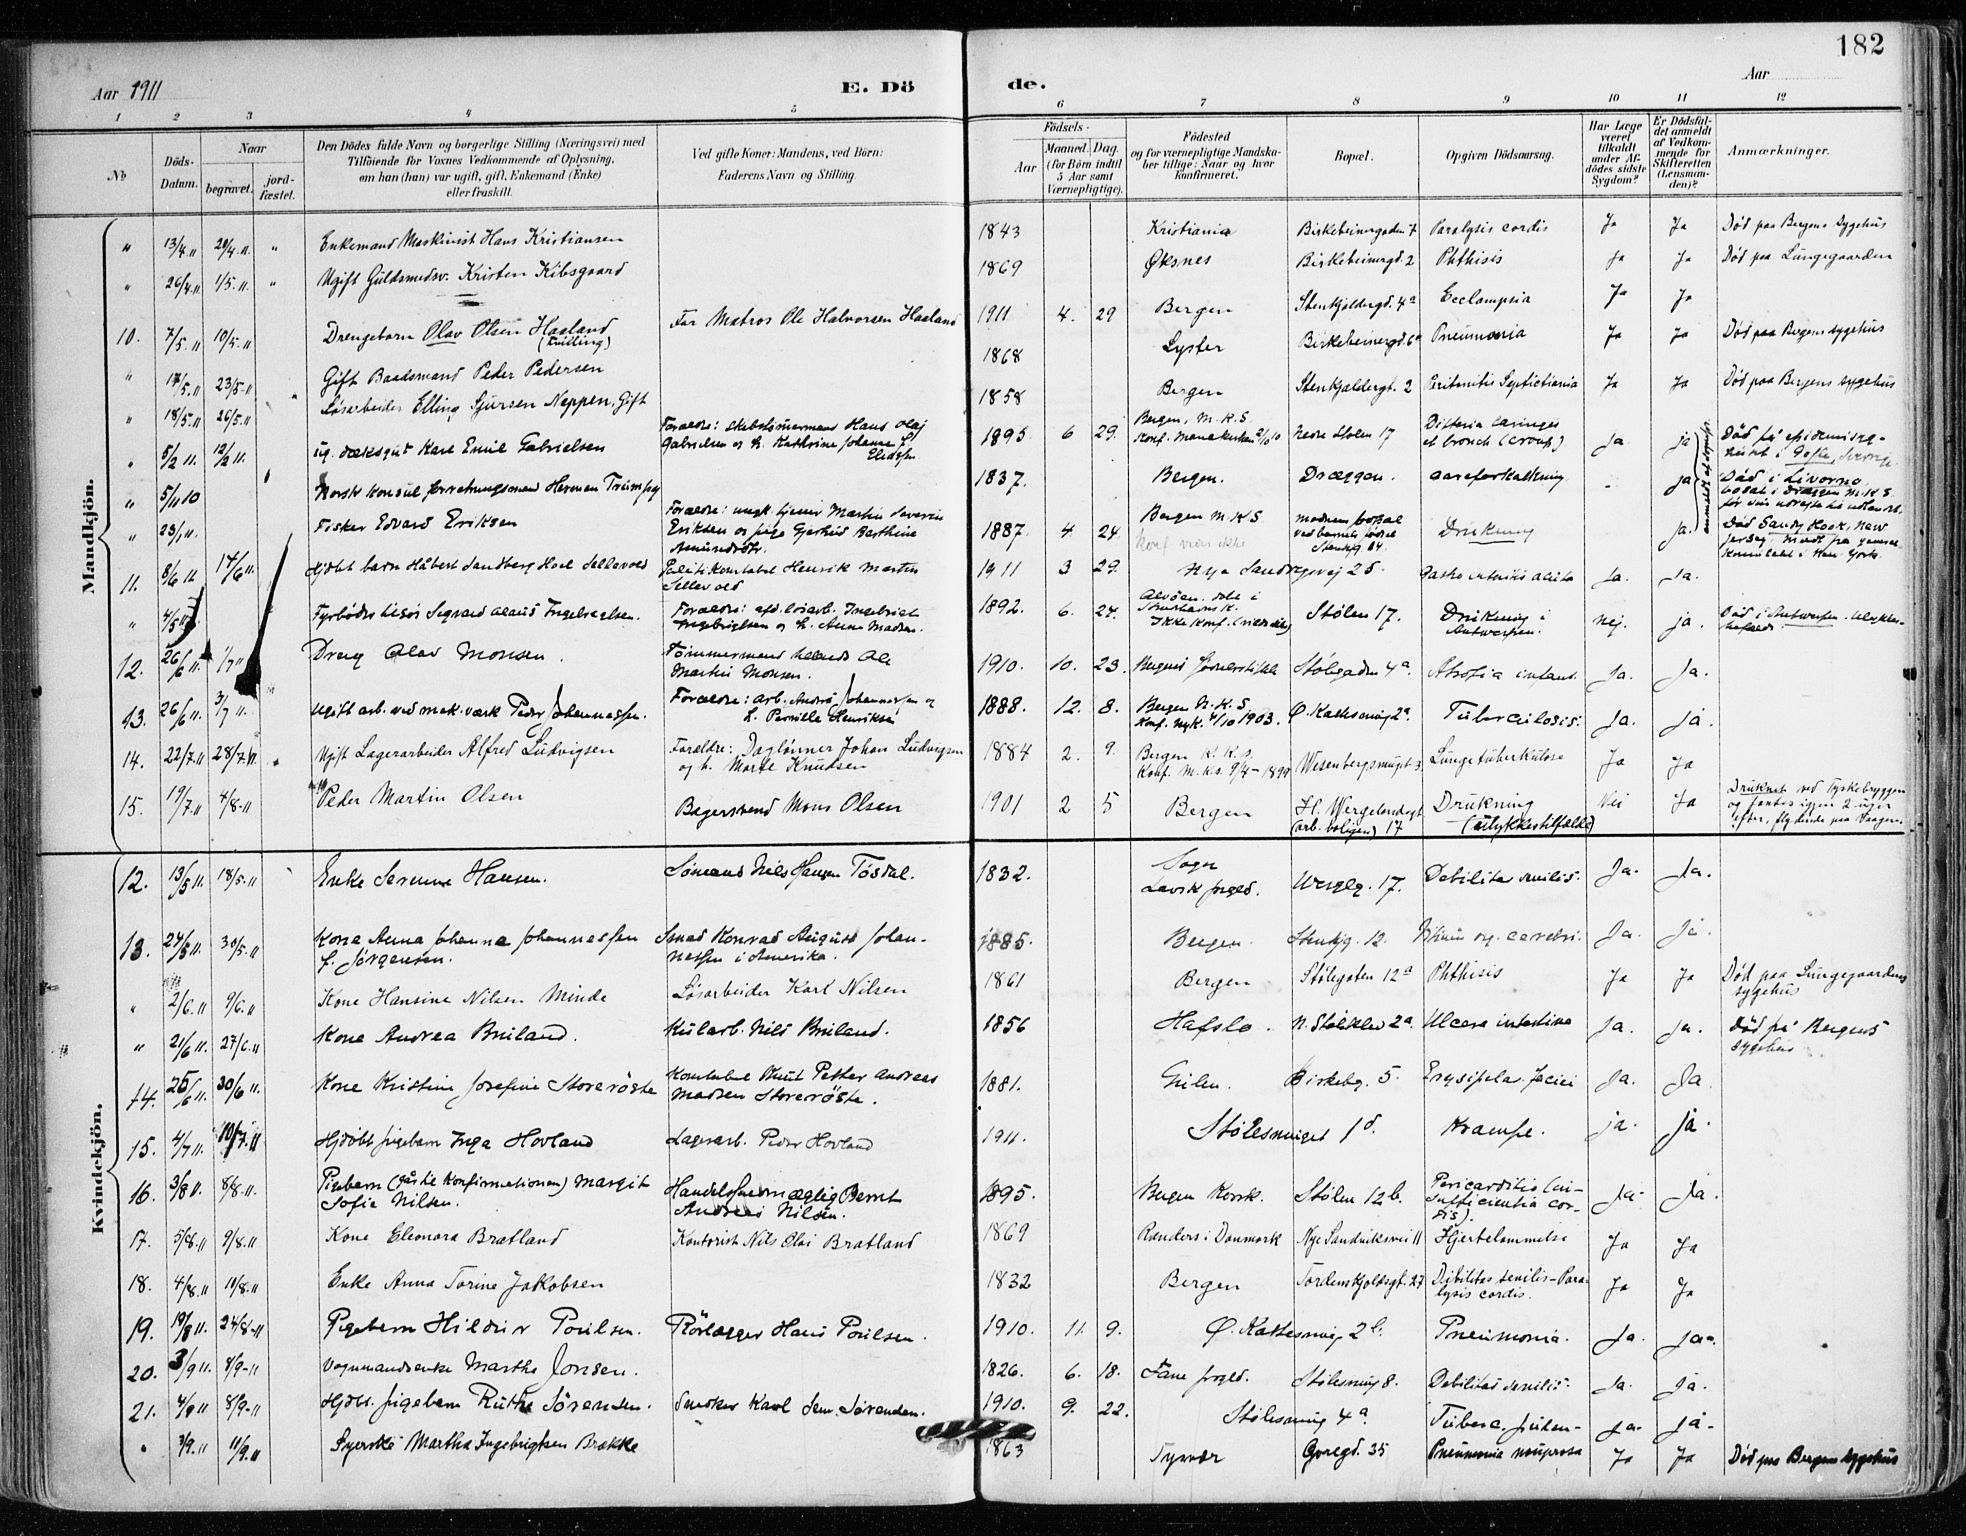 182
Aar 1911
E. Dö
de.
Aar
1 2 3 4 5 6 7 8 9 10 11 12
No
Döds-Datum.
Naar
begravet.
jord-fæstet.
Den Dödes fulde Navn og borgerlige Stilling (Næringsvei) med
Tilföiende for Voxnes Vedkommende af Oplysning,
om han (hun) var ugift, gift, Enkemand (Enke)
eller fraskilt.
Ved gifte Koner: Mandens, ved Börn:
Faderens Navn og Stilling.
Födsels-
Aar
Maaned. Dag.
(for Börn indtil
5 Aar samt
Værnepligtige).
Födested
og for værnepligtige Mandska-
ber tillige: Naar og hvor
konfirmeret.
Bopæl.
Opgiven Dödsaarsag.
Har Læge
været
tilkaldt
under Af-
dödes sidste
Sygdom?
Er Dödsfal-
det anmeldt
af Vedkom-
mende for
Skifteretten
(Lensman-
den)?
Anmærkninger.
Mandkjön.
" 13/4 11 20/4 11. " Enkemand Maskinist Hans Kristiansen 1843 Kristiania Birkebeinergaden 7 Paralysis cordis Ja Ja Död paa Bergens sygehus
" 26/4 11 1/5 11. " Ugift Guldsmedsv. Kristen Kibsgaard 1869 Øksnes Birkebeinergd. 2 Phthisis Ja Ja Död paa Lungegaarden
10. 7/5 11 10/5 11 Drengebarn Olav Olsen Haaland (trilling) Far Matros Ole Halvorsen Haaland 1911 4. 29 Bergen Stenkjeldergd. 4a Ecclampsia Ja Ja
" 17/5 11 23/5 11 Gift Baadsmand Peder Pedersen 1868 Lyster Birkebeinergd. 6a Pneumonia Ja Ja Död paa Bergens sygehus
" 18/5 11 26/5 11 Løsarbeider Elling Sjursen Neppen, Gift 1858 Bergen Stenkjeldergt. 2 Peritonitis Ja Ja Död paa Bergens sygehus
" 5/2 11. 12/2 11. ug. dæksgut Kare Emil Gabrielsen Forældre: skibstømmermand Hans Olaj
Gabrielsen og h. Kathrine Johanne f.
1895 6 29. Bergen, M.K.S. Nedre Stølen 17 Difteria laringis
et bronch (croup) Ja ja Död på epidemisyg-
huset i Gefle, Sverige
" 5/11 10 Norsk konsul forretningsmand Herman Trumpy 1837. Bergen. Dræggen. aareforkalkning - ja Död i Livorno,
bosat i Dræggen M.K.S.
" 23/1 11. Fisker Edvard Eriksen Forældre: ungk. tjener Martin Severin
Eriksen og pige Gjertrud Barthine
1887. 4 24. Bergen M.K.S. Drukning ja. Död Sandy Hook, New
11. 8/6 11 14/6 11. Hjdøbt barn Håbert Sandberg Sellevold Politikonstabel Henrik Martin
Sellevold 1911 3 29. Nye Sandvigsvej 25. Gastro enteritis acuta Ja. Ja.
" 4/5 11 Fyrbøder Sigvard Ingebrigtsen. Forældre: Ingebrigt
Ingebrigtsen og h. Anna Madsen. 1892. 6. 24. Stølen 17. Drukning i
Antwerpen. nej. ja. Död i Antwerpen.
12. 26/6 11. 1/7 11 Dreng Olav Monsen. Tømmermand Ole
Martin Monsen. 1910. 10. 23. Stølegaden 4a Atrofia infant. Ja. Ja.
13. 26/6 11. 3/7 11. Ugift arb. ved mek. værk Peder Johannessen. Forældre: arb. Andrs. Johannessen og
h. Pernille Henriksd. 1888. 12. 8. Bergen N.K.S.
Konf. Nyk. 4/10 1903. Ø. Kattesmug 2a. Tuberculosis. Ja. ja.
14. 22/7 11 28/7 11. Ugift Lagerarbeider Alfred Ludvigsen Forældre: Daglønner Johan Ludvigsen
og h. Marte Knudsen 1884 2 9. Bergen K.K.S.
Konf. M.K.S. 9/4-1899 Wesenbergsmuget 3. Lungetuberkulose Ja Ja
15. 19/7 11 4/8 11 Peder Martin Olsen Bagersvend Mons Olsen 1901 2 5 Bergen H. Wergelandsgt
(arb. boligen) 17 Drukning
(ulykkestilfælde) Nei Ja Druknet ved Tyskebryggen
og fantes igjen 2 uger
efter, flydende paa Vaagen.
Kvindekjön.
12. 13/5 11. 18/5 11 Enke Hansen. Sømand Nils Hansen Tøsdal. 1832. Sogn
Lavik prgld. Wergelg. 17. Debilitas senilis. Ja. Ja.
13. 24/5 11. 30/5 11 Kone Anna Johanna Johannessen
f. Jørgensen. Smed Konrad August Johan-
nessen i Amerika. 1885. Bergen. Stenkjg. 12. Vitium org. cordis. Ja. ja.
" 2/6 11 9/6 11 Kone Hansine Nilsen Minde Løsarbeider Karl Nilsen 1861 Bergen Stølegaten 12a Phthisis Ja Ja Död paa Lungegaardens
sygehus
" 21/6 11. 27/6 11 Kone Andrea Bruland. Kularb. Nils Bruland. 1856 Hafslo. N. Stølklev 2a. Ulcera intestina Ja. ja. Död på Bergens
sygehus
14. 25/6 11. 30/6 11. Kone Kristine Josefine Storerøste Konstabel Knut Petter Andreas
Madsen Storerøste. 1881. Birkebg. 5. Erysipelas faciei Ja. Ja.
15. 4/7 11. 10/7 11 Hjdøbt pigebarn Inga Hovland Lagerarb. Peder Hovland 1911. Stølesmuget 1d. Krampe. ja. ja.
16. 3/8 11. 8/8 11. Pigebarn (gåd til Konfirmationen) Margit
Sofie Nilsen. Handelsfuldmægtig Bernt
Andreas Nilsen. 1895. Bergen Korsk. Stølen 12b. Pericarditis (in-
sufficientia cor-
dis). Ja. Ja.
17. 5/8 11 9/8 11 Kone Eleonora Bratland Kontorist Nils Olai Bratland 1869 Randers i Danmark Nye Sandviksvei 11 Hjertelammelse Ja Ja
18. 4/8 11 10/8 11 Enke Anna Torine Jakobsen 1832 Bergen Tordenskjoldsgt. 27 Debilitas senilis - Para-
lysis cordis. Ja Ja
19. 19/8 11. 24/8 11 Pigebarn Hildur Poulsen. Rörlægger Hans Poulsen. 1910. 11. 9. Ø. Kattesmug 2b. Pneumonia. Ja. ja.
20. 3/9 11. 8/9 11 Vognmandsenke Martha Jonsen. 1826. 6. 18. Fane prgld. Stølesmug 8. Debilitas senilis. Ja. Ja.
21. 4/9 11 8/9 11 Hjdøbt pigebarn Ruth Sørensen. Snedker Karl Sørensen. 1910. 9. 22. Stølesmug 4a. Ja. ja.
" 3/9. 11 11/9. 11 Syerske Martha Ingebrigtsen Brække 1863 Tysvær Øvregd. 35 Pneumonia Ja Ja Död paa Bergens sygehus